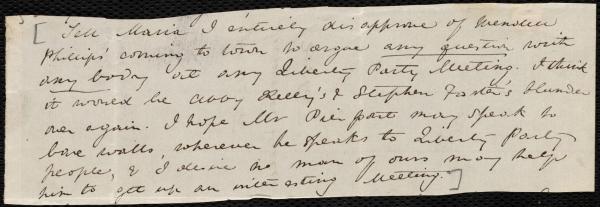 [Tell Maria I entirely disapprove of Wendell
Phillips' coming to town to argue any question with
any body at any Liberty Party Meeting. I think
it would be Abby Kelley's & Stephen Foster's blunder
over again. I hope Mr Pierpont may speak to
bare walls, wherever he speaks to Liberty Party
people, & I desire no man of ours may help
him to get up an interesting Meeting.]